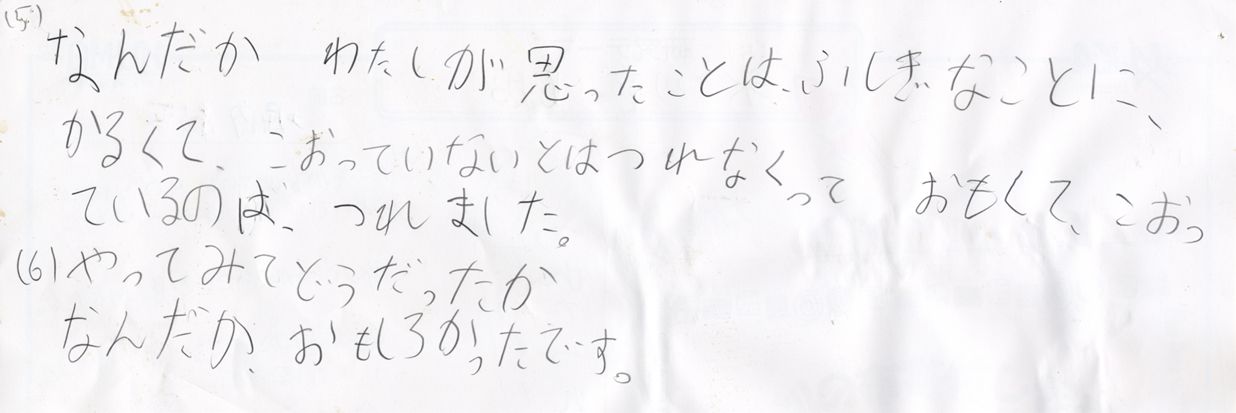 (5)
なんだか わたしが思ったことは、ふしぎなことに、
かるくて、こおっていないとはつれなくって おもくて、こおっ
ているのは、つれました。
(6)やってみてどうだったか
なんだか、おもしろかったです。